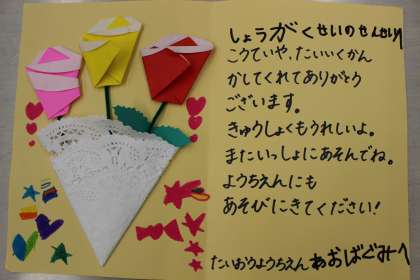 しょうがくせいのせんせいへ
こうていや、たいいくかん
かしてくれてありがとう
ございます。
きゅうしょくもうれしいよ。
またいっしょにあそんでね。
ようちえんにも
あそびにきてください!
たいおうようちえん あおばぐみ